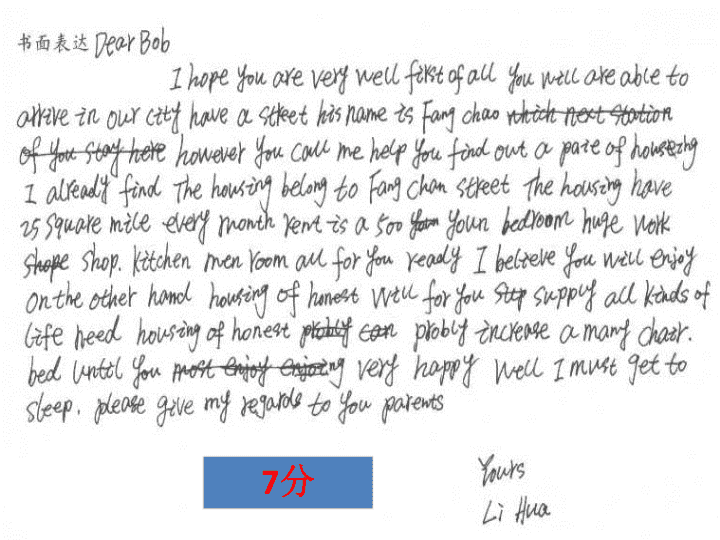 书面表达 Dear Bob
I hope you are very well first of all you will are able to
arrive in our city have a street his name is Fang chao which next station
of you stay here however you call me help you find out a paire of housing
I already find The housing belong to Fang chan street The housing have
25 square mile every month rent is a 500 your bedroom huge work
shope shop. kitchen men room all for you ready I believe you will enjoy
on the other hand housing of honest will for you sup supply all kinds of
life need housing of honest can probly increase a many chair.
bed until you most enjoy enjoing very happy well I must get to
sleep. please give my regards to you parents
7分
Yours
Li Hua